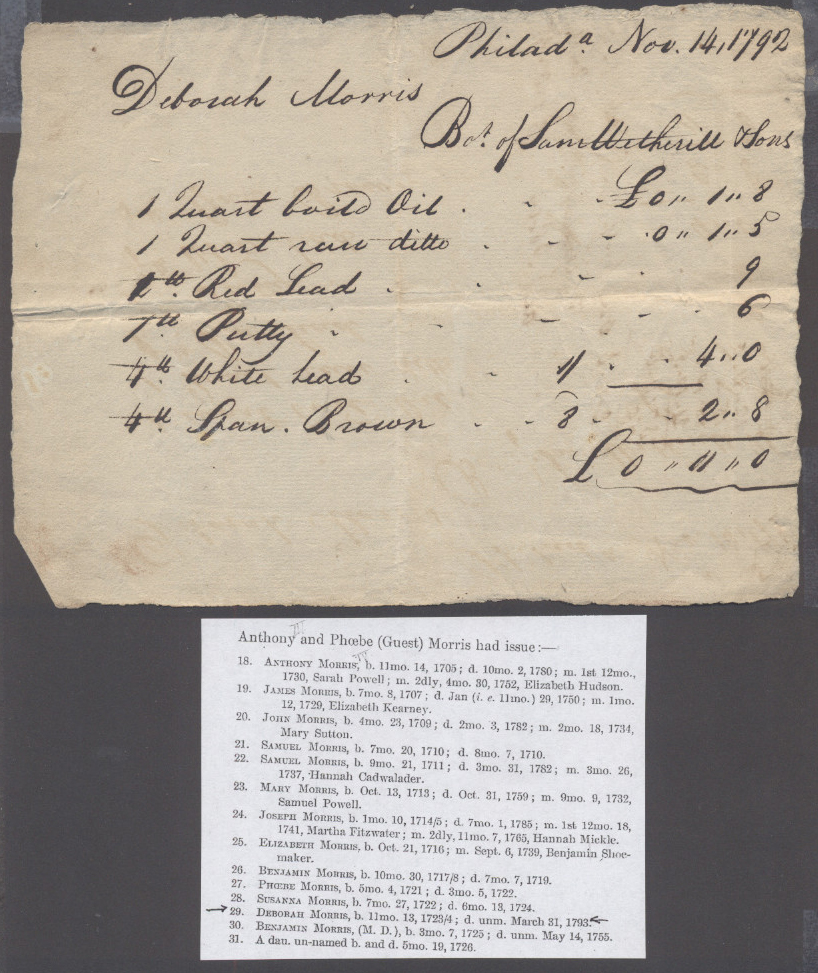 Philad.ª Nov. 14, 1792
Deborah Morris
Bot. of Sam Wetherill & Sons
1 Quart boild Oil . - - £0 ,, 1 ,, 8
1 Quart raw ditto . - - 0 ,, 1 ,, 5
lb. Red Lead . - - 9
1 lb. Putty - - - - 6
4 lb. White Lead . - 1/ . - 4 ,, 0
4 lb Span. Brown - - 8 - - 2 ,, 8
£ 0 ,, 11 ,, 0
Anthony III and Phœbe (Guest) Morris had issue:—
18. ANTHONY MORRIS, b. 11mo. 14, 1705; d. 10mo. 2, 1780; m. 1st 12mo.,
1730, Sarah Powell; m. 2dly, 4mo. 30, 1752, Elizabeth Hudson.
19. JAMES MORRIS, b. 7mo. 8, 1707; d. Jan (i. e. 11mo.) 29, 1750; m. 1mo.
12, 1729, Elizabeth Kearney.
20. JOHN MORRIS, b. 4mo. 23, 1709; d. 2mo. 3, 1782; m. 2mo. 18, 1734,
Mary Sutton.
21. SAMUEL MORRIS, b. 7mo. 20, 1710; d. 8mo. 7, 1710.
22. SAMUEL MORRIS, b. 9mo. 21, 1711; d. 3mo. 31, 1782; m. 3mo. 26,
1737, Hannah Cadwalader.
23. MARY MORRIS, b. Oct. 13, 1713; d. Oct. 31, 1759; m. 9mo. 9, 1732,
Samuel Powell.
24. JOSEPH MORRIS, b. 1mo. 10, 1714/5; d. 7mo. 1, 1785; m. 1st 12mo. 18,
1741, Martha Fitzwater; m. 2dly, 11mo. 7, 1765, Hannah Mickle.
25. ELIZABETH MORRIS, b. Oct. 21, 1716; m. Sept. 6, 1739, Benjamin Shoe-
maker.
26. BENJAMIN MORRIS, b. 10mo. 30, 1717/8; d. 7mo. 7, 1719.
27. PHŒBE MORRIS, b. 5mo. 4, 1721; d. 3mo. 5, 1722.
28. SUSANNA MORRIS, b. 7mo. 27, 1722; d. 6mo. 13, 1724.
29. DEBORAH MORRIS, b. 11mo. 13, 1723/4; d. unm. March 31, 1793.
30. BENJAMIN MORRIS, (M. D.), b. 3mo. 7, 1725; d. unm. May 14, 1755.
31. A dau. un-named b. and d. 5mo. 19, 1726.